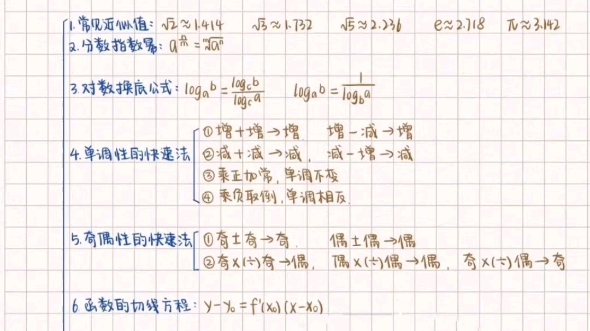 1.常见近似值: √2≈1.414 √3≈1.732 √5≈2.236 e≈2.718 π≈3.142
2.分数指数幂: a^(n/m)=ᵐ√aⁿ
3.对数换底公式: logₐb=log_c b/log_c a logₐb=1/log_b a
4.单调性的快速法
①增+增→增 增-减→增
②减+减→减, 减-增→减
③乘正加常,单调不变
④乘负取倒,单调相反
5.奇偶性的快速法
①奇±奇→奇, 偶±偶→偶
②奇×(÷)奇→偶, 偶×(÷)偶→偶, 奇×(÷)偶→奇
6.函数的切线方程: y-y₀=f'(x₀)(x-x₀)